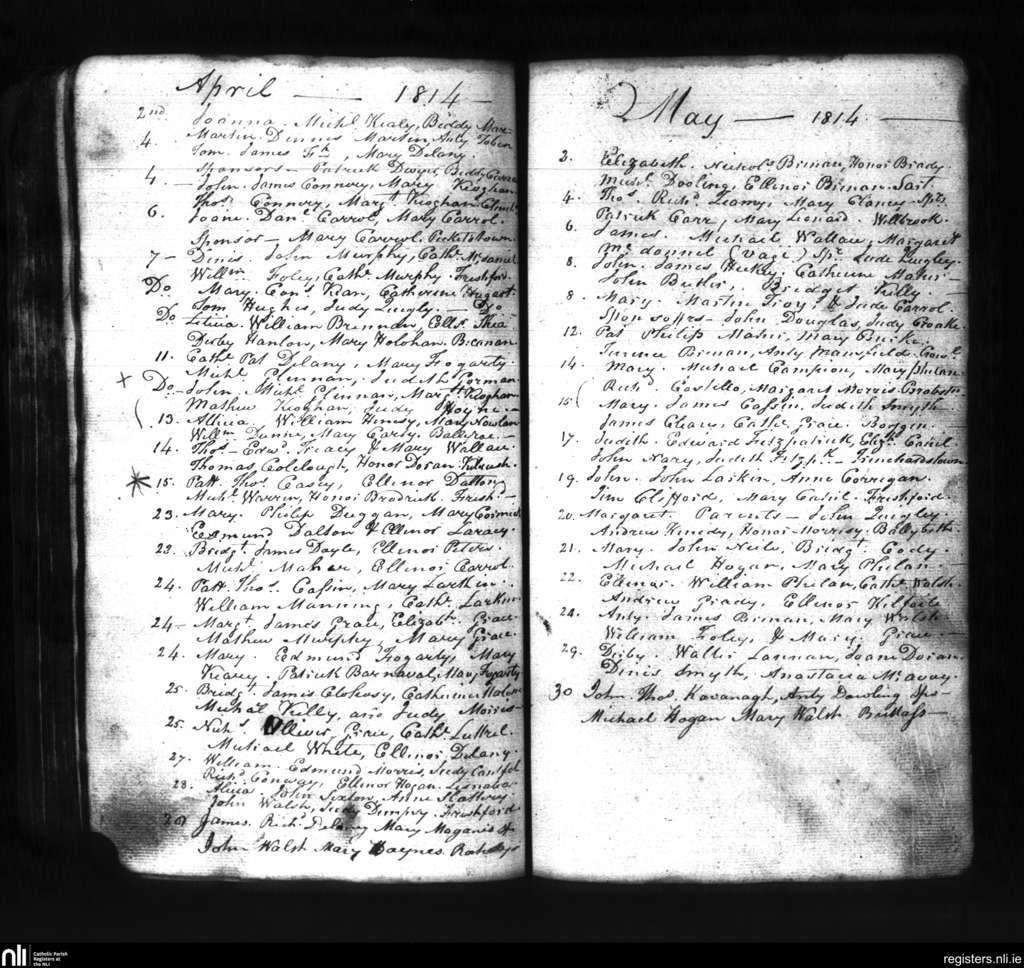 April — 1814 —
2nd. Joanna. Michl Kealy, Biddy Mar
4. Martin. Dennis Marten, Anty Tobin
Tom. James Fth, Mary Delany.
Sponsors — Patrick Dwyer Biddy
4. — John. James Connory, Mary Keoghan
Thos. Connory, Margt. Keoghan.
6. Joane. Danl. Carrol, Mary Carrol.
Sponsor — Mary Carrol.
7 — Denis. John Murphy, Cathe. McDaniel
Willm. Foley, Cathe. Murphy. Freshford.
Do. Mary. Cons. Kean, Catherine
Tom Hughes, Judy Quigly. — Do —
Do Leticia. William Brennan, Elln. Shea
Derby Hanlon, Mary Holohan.
11. Cathe. Pat Delany, Mary Fogarty.
Michl. Glennan, Judith Gorman.
Do. — John. Michl. Glinnan, Margt. Keoghan
Mathew Keoghan, Judy Hoyne. —
13. Alicia. William Henesy, Mary Nowlan
Willm. Dunne, Mary Carty. —
14. Thos. — Edwd. Treacy & Mary Wallace
Thomas Colclough, Honor Doran.
15. Patt. Thos. Casey, Ellenor Dalton
Michl. Warren, Honor Brodrick. Fresh. —
23. Mary. Philip Duggan, Mary Cormick
Edmund Dalton & Ellenor Laracy.
22. Bridgt. James Doyle, Ellenor Peters.
Michl. Maher, Ellenor Carrol.
24. Patt. Thos. Cassin, Mary Larkin.
William Manning, Cathe. Larkin.
24 — Margt. James Grace, Elizabt. Grace
Mathew Murphy, Mary Grace.
24. Mary. Edmund Fogarty, Mary
Keary. Patrick Barnaval, Mary Fogarty
25. Bridgt. James Clohosy, Catherine
Michal Kelly, and Judy Morris —
25. Nichs. Olliver Grace, Cathe. Luttrel.
Michael White, Ellenor Delany.
27. William. Edmund Morris, Judy Cantfel
Richd. Conway, Ellenor Hogan.
28. Alicia. John Sexton, Anne Slattery
John Walsh, Judy Dempsy. Freshford
30 James. Richd. Delany Mary
John Walsh Mary Haynes.
May — 1814 —
2. Elizabeth. Nichols Birnan, Honor Brady.
Michl. Dooling, Ellenor Birnan.
4. Thos. Richd. Leamy, Mary Clancy
Patrick Carr, Mary Leonard. Wellbrook.
6. James. Michael Wallace, Margaret
McDonnel (Vage) Sps. Jude Quigley.
8. John. James Hickey, Catherine Maher
John Butler, Bridget Kelly —
8. Mary. Martin Troy & Jude Carrol.
Sponsors — John Douglas, Judy Croake.
12. Pat Philip Maher, Mary Burke,
Terence Birnan, Anty Mansfield.
14. Mary. Michael Campion, Mary Phelan.
Richd. Costello, Margaret Morris.
15 Mary. James Cassin, Judith Smyth
James Cleary, Cathe. Grace.
17. Judith. Edward Fitzpatrick, Elizth. Casiel
John Nary, Judith Fitzpk. —
19. John. John Larkin, Anne Corrigan.
Jim Clifford, Mary Casiel. Freshford.
20. Margaret. Parents — John Quigley
Andrew Kenedy, Honor Morrisy.
21. Mary. John Neile, Bridgt Cody.
Michael Hogan, Mary Phelan. —
22. Ellenor. William Phelan, Cathe. Walsh.
Andrew Grady, Ellenor
24. Anty. James Birnan, Mary Walsh
William Foley, & Mary Grace.
29. Derby. Walter Lannan, Joane Doran.
Denis Smyth, Anastacia McAvoy.
30 John. Thos. Kavanagh, Anty Dowling Sps
Michael Hogan Mary Walsh —
nli
Catholic Parish
Registers at
the NLI
registers.nli.ie